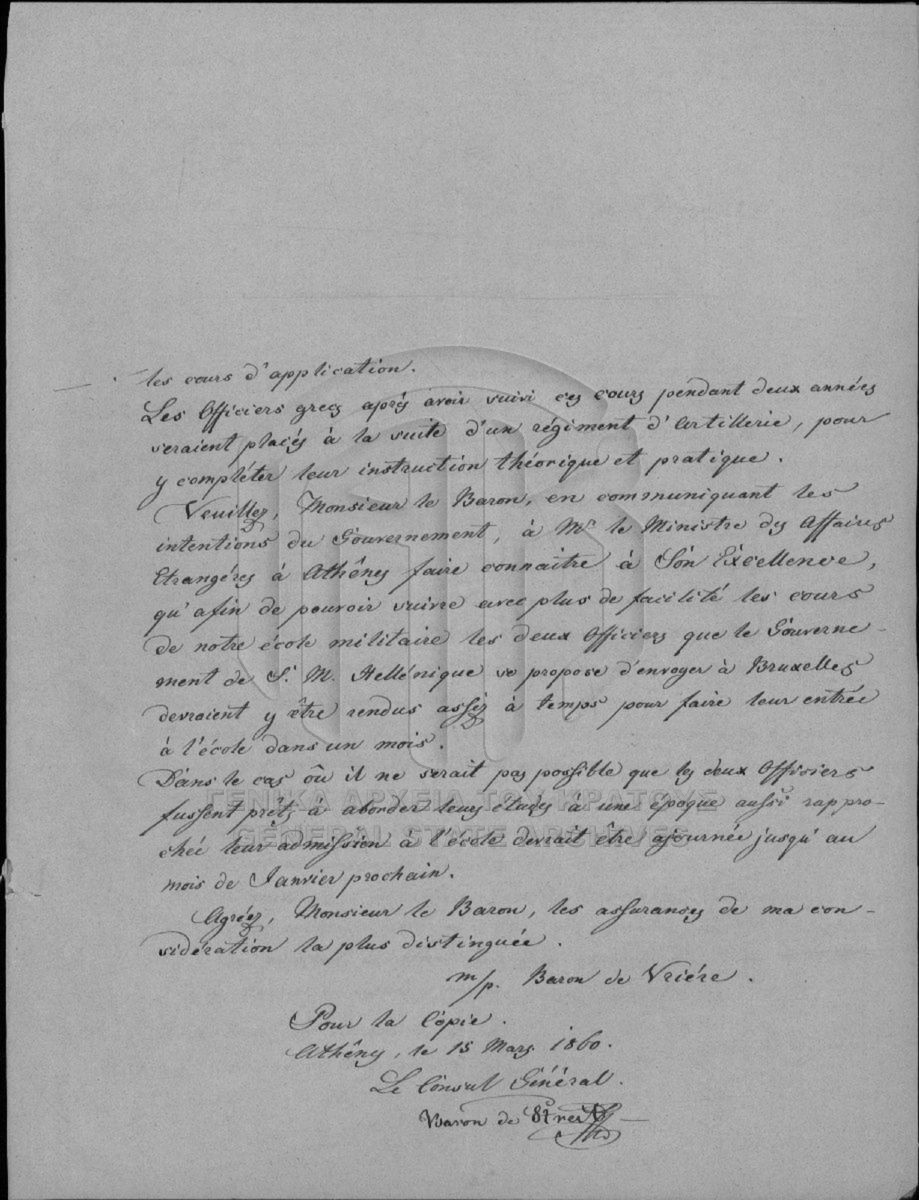 les cours d'application.
Les Officiers grecs après avoir suivi ces cours pendant deux années
seraient placés à la suite d'un régiment d'Artillerie, pour
y compléter leur instruction théorique et pratique.
Veuillez, Monsieur le Baron, en communiquant les
intentions du Gouvernement, à Mr le Ministre des Affaires
Etrangéres à Athênes faire connaitre à Son Excellence,
qu'afin de pouvoir suivre avec plus de facilité les cours
de notre école militaire les deux Officiers que le Gouverne-
ment de S. M. Hellénique se propose d'envoyer à Bruxelles
devraient y être rendus assez à temps pour faire leur entrée
à l'école dans un mois.
Dans le cas où il ne serait pas possible que les deux Officiers
fussent prêts à aborder leurs études à une époque aussi rappro-
chée leur admission à l'école devrait être ajournée jusqu'au
mois de Janvier prochain.
Agréez, Monsieur le Baron, les assurances de ma con-
sidération la plus distinguée.
m/p. Baron de Vriére.
Pour la Copie.
Athêns, le 15 Mars 1860.
Le Consul Général.
Baron de
ΓΕΝΙΚΑ ΑΡΧΕΙΑ ΤΟΥ ΚΡΑΤΟΥΣ
GENERAL STATE ARCHIVES